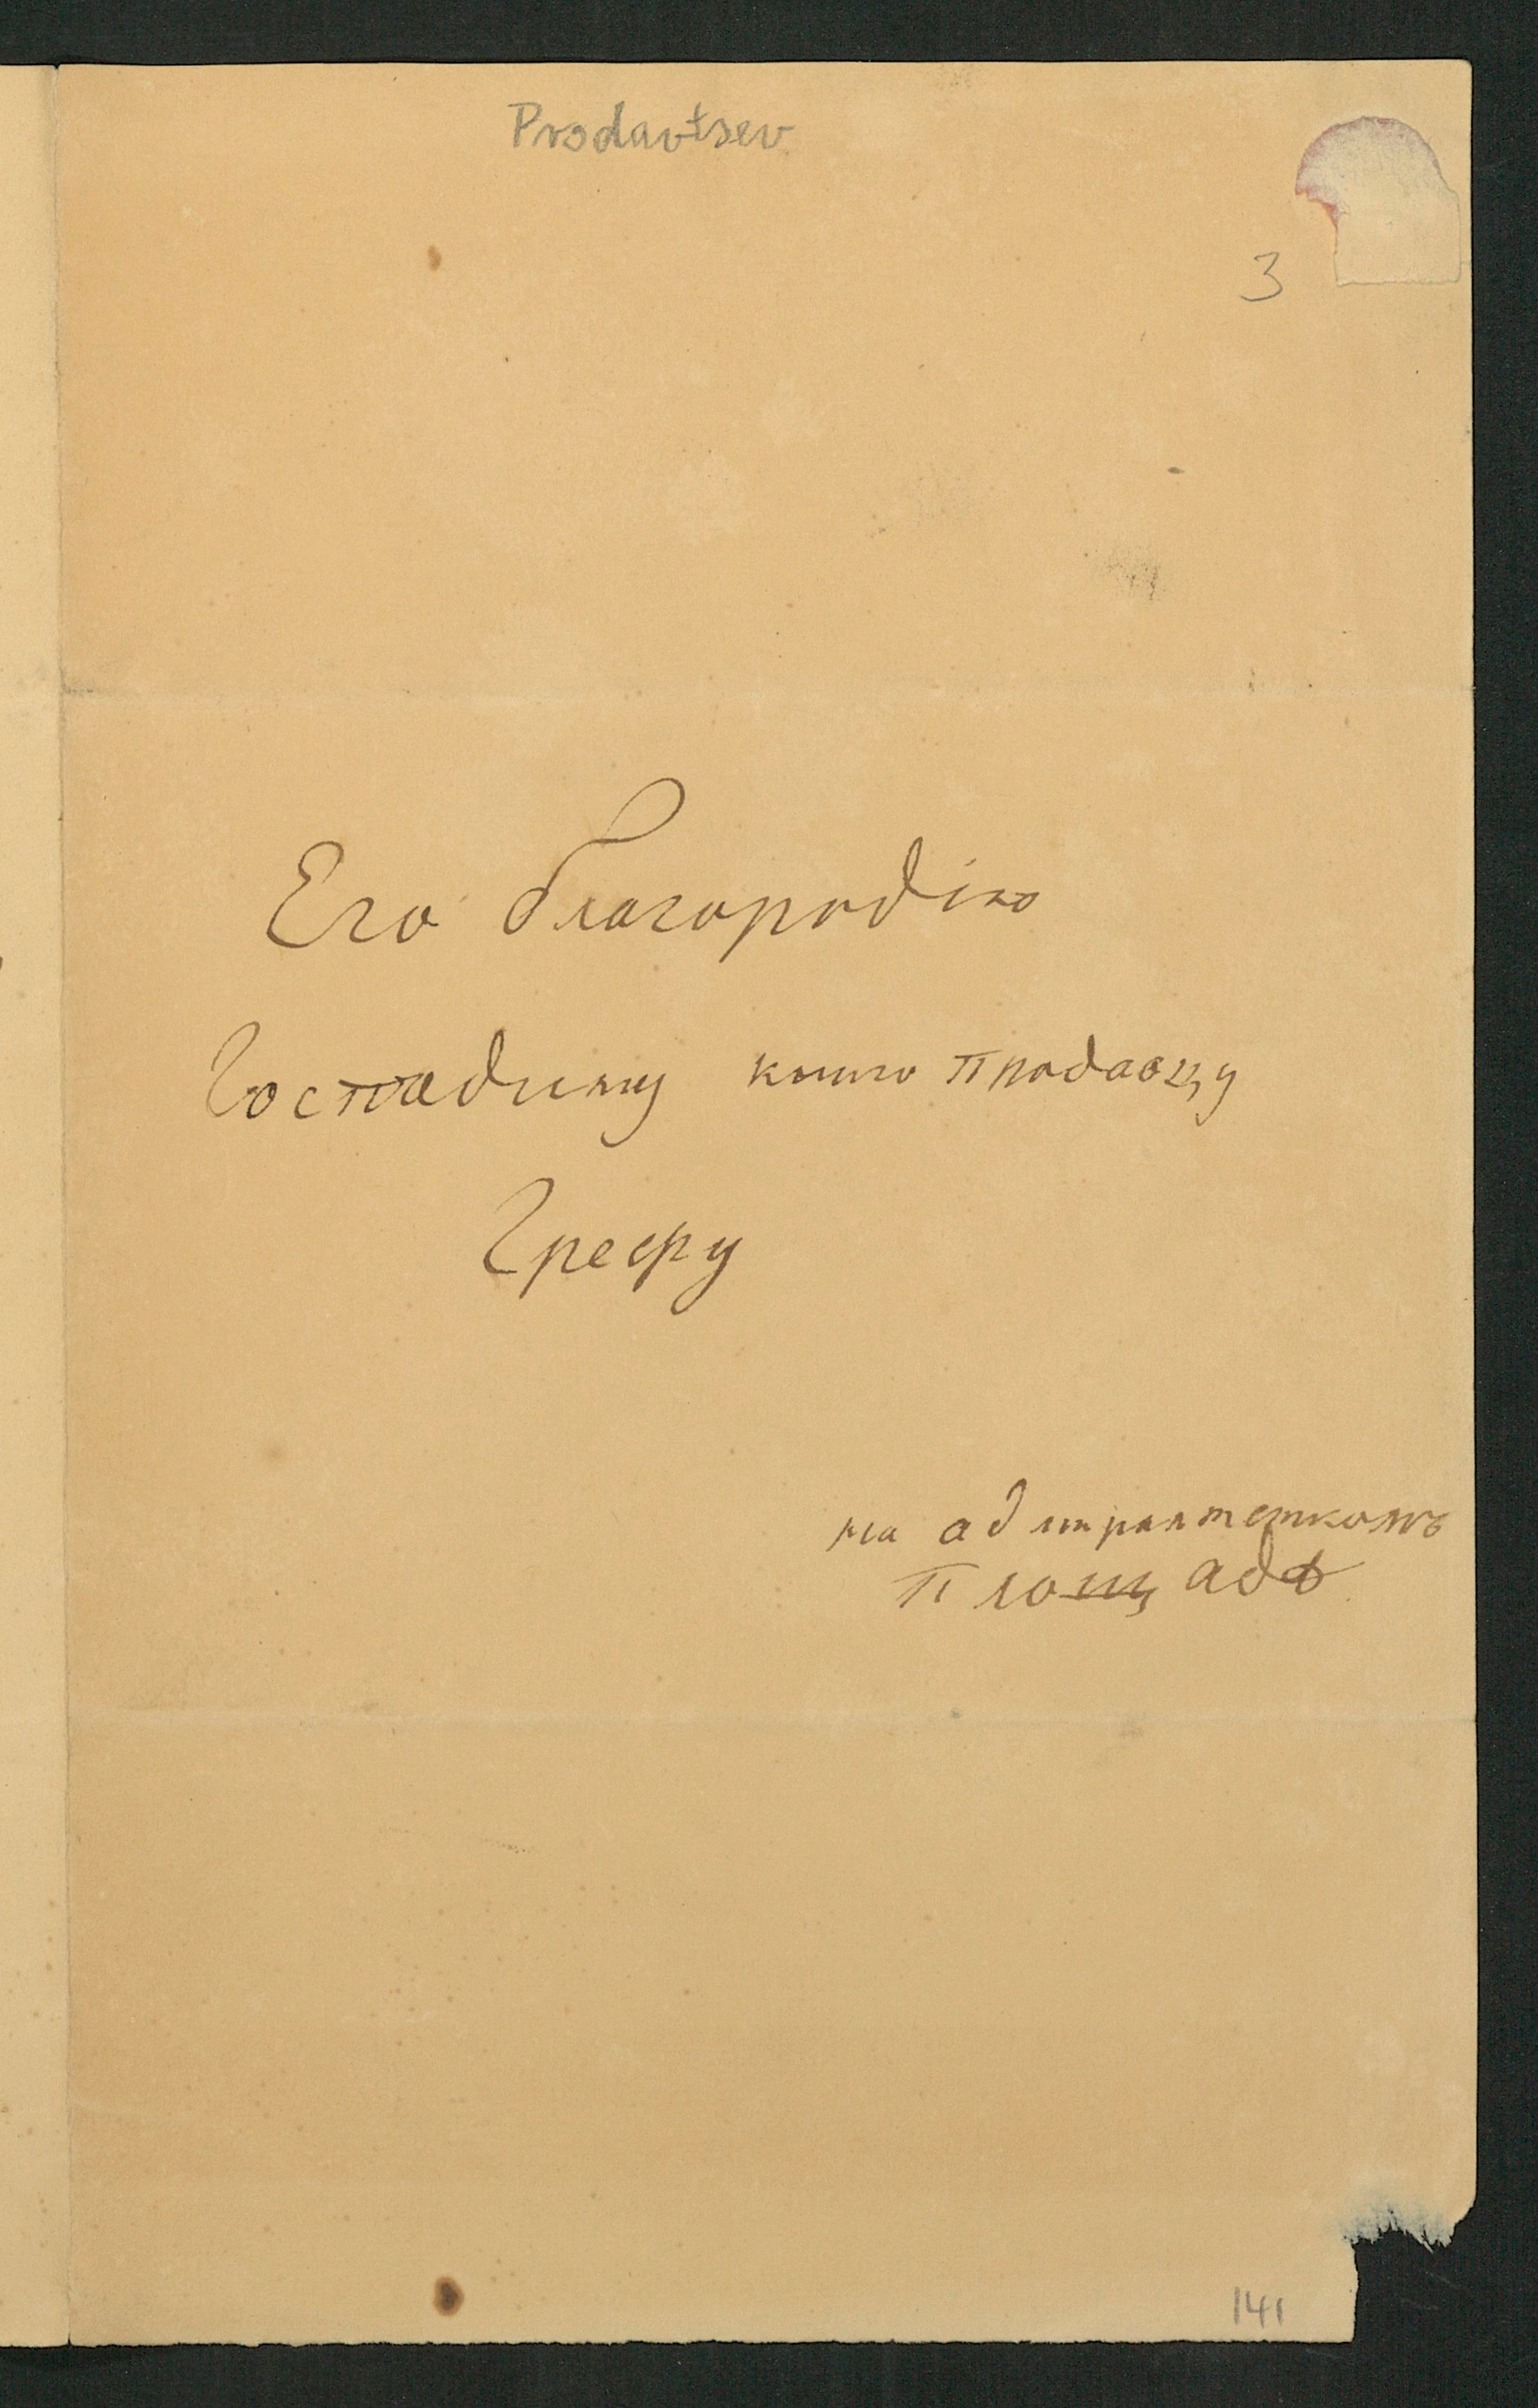 Prodavtsev
3
Его благородiю
Господину книго продавцу
Грефу
на адмиралтетскомъ
площадѣ
141